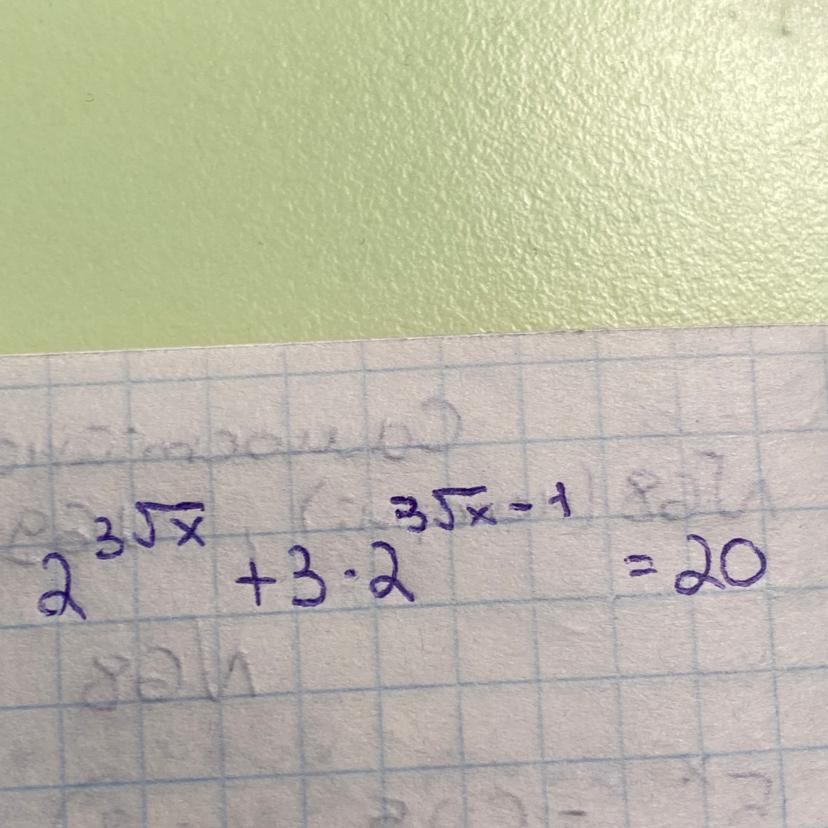 2^{3√x} + 3 · 2^{3√x - 1} = 20